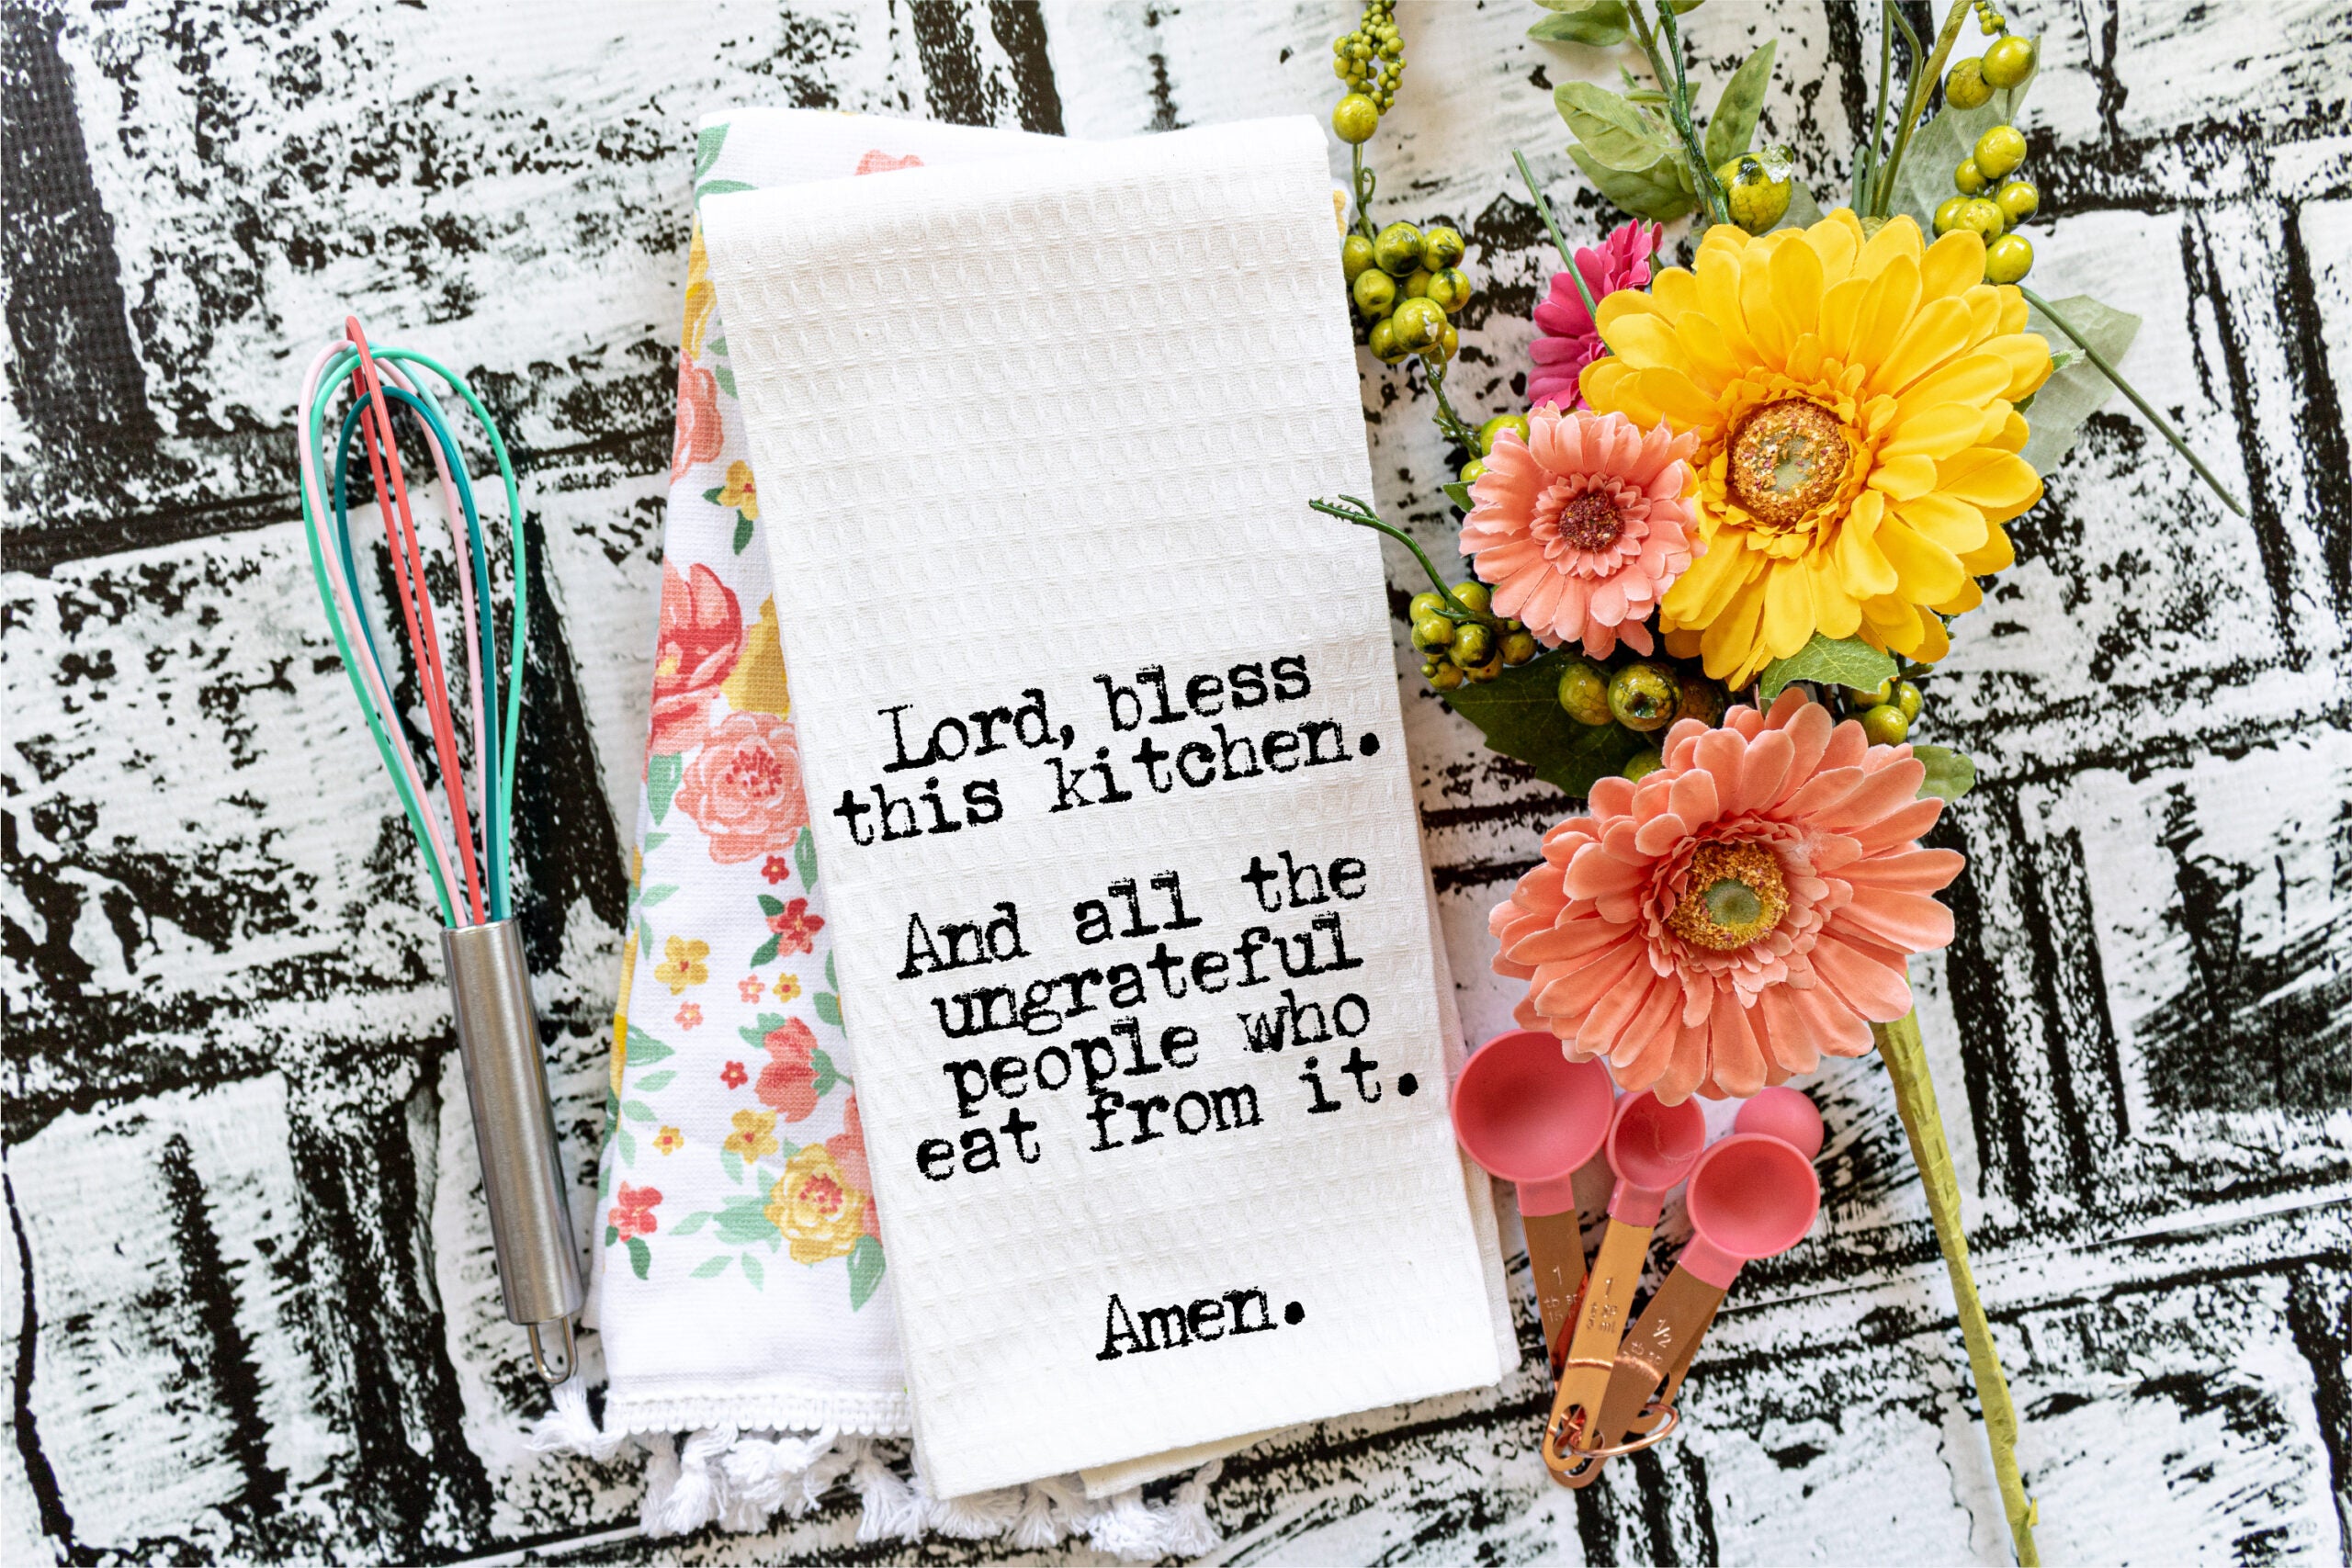 Lord, bless
this kitchen.
And all the
ungrateful
people who
eat from it.
Amen.
1
1
½